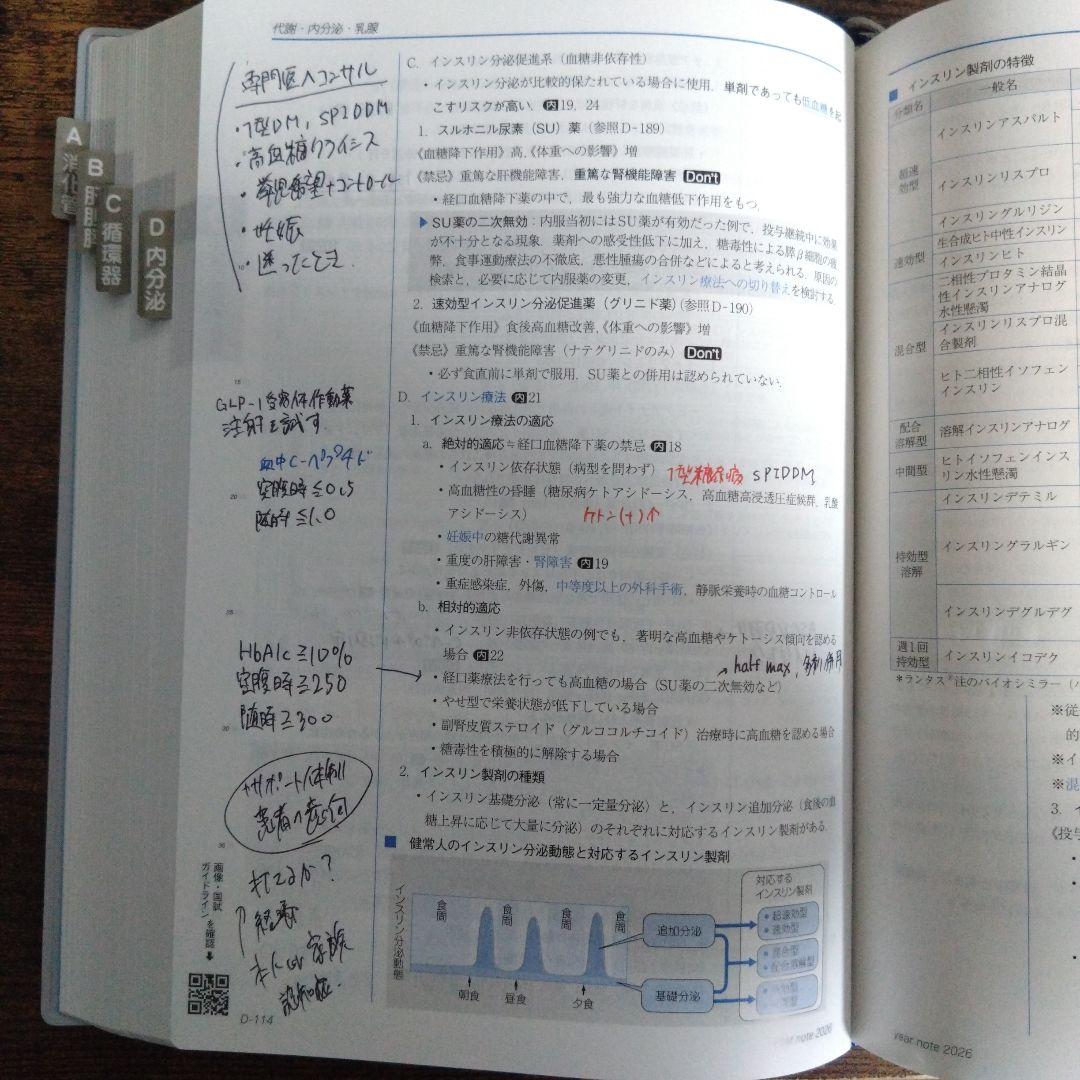 代謝・内分泌・乳腺
専門医へコンサル
・1型DM, SPIDDM
・高血糖クライシス
・挙児希望+コントロール
・妊娠
・迷ったとき
A 消化管
B 肝胆膵
C 循環器
D 内分泌
C. インスリン分泌促進系（血糖非依存性）
・インスリン分泌が比較的保たれている場合に使用．単剤であっても低血糖を起
こすリスクが高い．内19, 24
1. スルホニル尿素（SU）薬（参照D-189）
《血糖降下作用》高，《体重への影響》増
《禁忌》重篤な肝機能障害，重篤な腎機能障害 Don't
・経口血糖降下薬の中で，最も強力な血糖低下作用をもつ．
▶SU薬の二次無効：内服当初にはSU薬が有効だった例で，投与継続中に効果
が不十分となる現象．薬剤への感受性低下に加え，糖毒性による膵β細胞の疲
弊，食事運動療法の不徹底，悪性腫瘍の合併などによると考えられる．原因の
検索と，必要に応じて内服薬の変更，インスリン療法への切り替えを検討する．
2. 速効型インスリン分泌促進薬（グリニド薬）（参照D-190）
《血糖降下作用》食後高血糖改善，《体重への影響》増
《禁忌》重篤な腎機能障害（ナテグリニドのみ） Don't
・必ず食直前に単剤で服用．SU薬との併用は認められていない．
D. インスリン療法 内21
1. インスリン療法の適応
a. 絶対的適応≒経口血糖降下薬の禁忌 内18
・インスリン依存状態（病型を問わず） 1型糖尿病 SPIDDM
・高血糖性の昏睡（糖尿病ケトアシドーシス，高血糖高浸透圧症候群，乳酸
アシドーシス） ケトン(+)↑
・妊娠中の糖代謝異常
・重度の肝障害・腎障害 内19
・重症感染症，外傷，中等度以上の外科手術，静脈栄養時の血糖コントロール
b. 相対的適応
・インスリン非依存状態の例でも，著明な高血糖やケトーシス傾向を認める
場合 内22
→half max, 多剤併用
・経口薬療法を行っても高血糖の場合（SU薬の二次無効など）
・やせ型で栄養状態が低下している場合
・副腎皮質ステロイド（グルココルチコイド）治療時に高血糖を認める場合
・糖毒性を積極的に解除する場合
2. インスリン製剤の種類
・インスリン基礎分泌（常に一定量分泌）と，インスリン追加分泌（食後の血
糖上昇に応じて大量に分泌）のそれぞれに対応するインスリン製剤がある．
■ 健常人のインスリン分泌動態と対応するインスリン製剤
インスリン分泌動態
食間
食間
食間
食間
朝食
昼食
夕食
追加分泌
基礎分泌
対応する
インスリン製剤
・超速効型
・速効型
・混合型
・配合溶解型
10
15
GLP-1受容体作動薬
注射を試す
血中C-ペプチド
空腹時≦0.5
随時≦1.0
20
25
HbA1c≧10%
空腹時≧250
随時≧300
30
+サポート体制
患者の意向
35
打てるか?
↑経済
本人 or 家族
認知症.
画像・国試
ガイドラインを確認
D-114
year note 2026
■ インスリン製剤の特徴
分類名
一般名
超速効型
インスリンアスパルト
インスリンリスプロ
インスリングルリジン
速効型
生合成ヒト中性インスリン
インスリンヒト
混合型
二相性プロタミン結晶
性インスリンアナログ
水性懸濁
インスリンリスプロ混
合製剤
ヒト二相性イソフェン
インスリン
配合
溶解型
溶解インスリンアナログ
中間型
ヒトイソフェンインス
リン水性懸濁
持効型
溶解
インスリンデテミル
インスリングラルギン
インスリンデグルデグ
週1回
持効型
インスリンイコデク
*ランタス®注のバイオシミラー（バ
※従
的
※イ
※混
3. イ
《投与
year note 2026